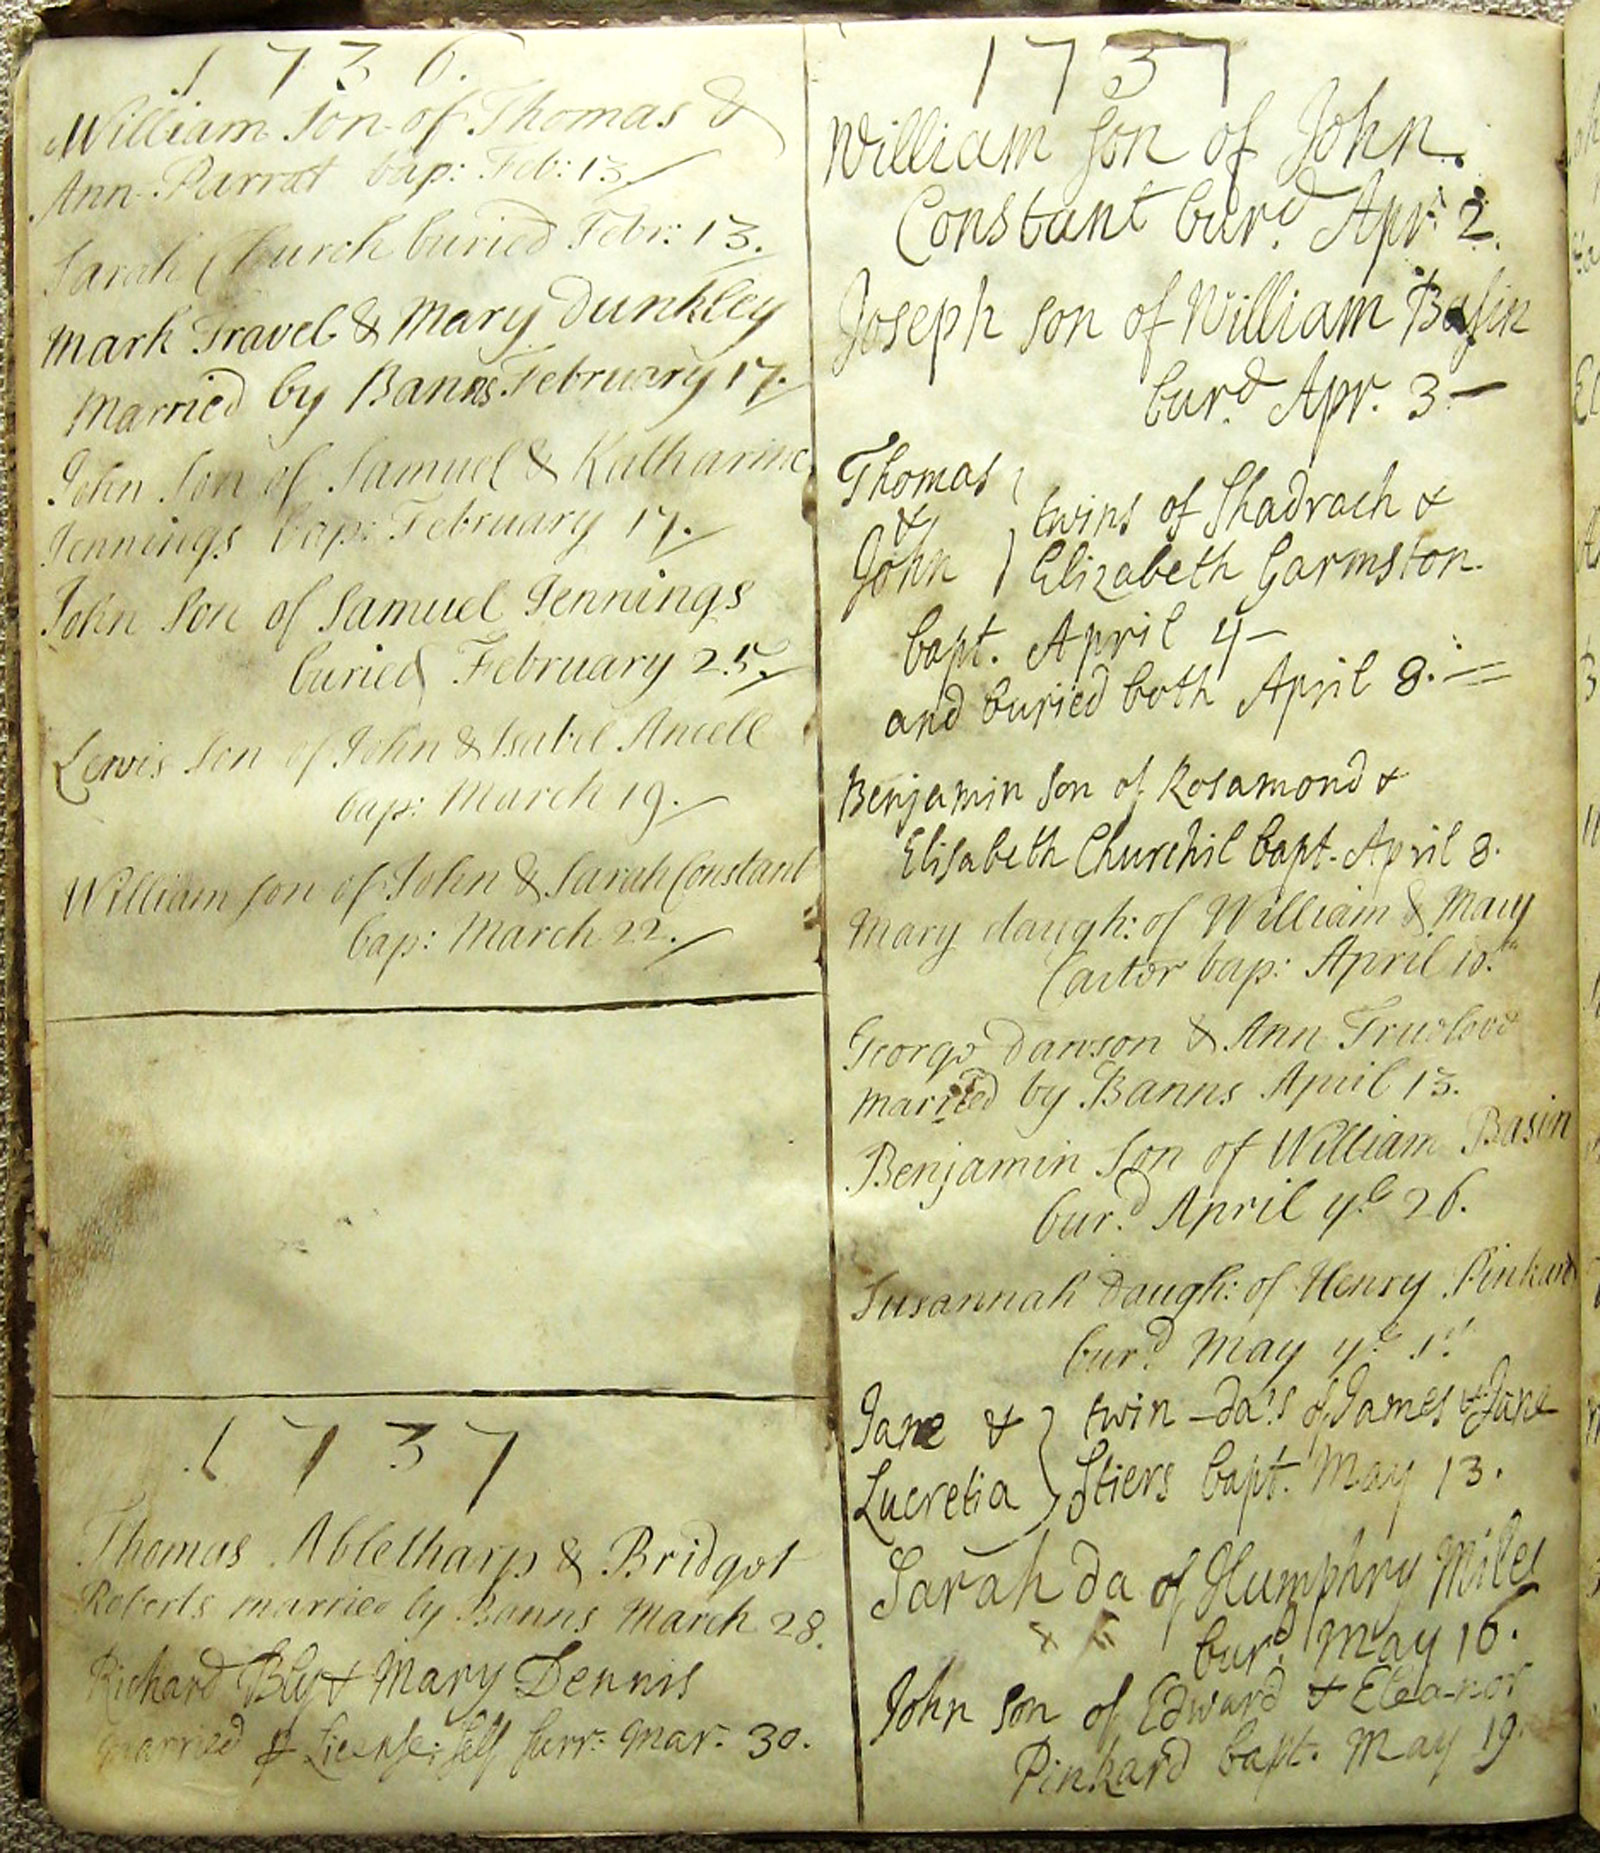 1736.
William Son of Thomas &
Ann Parrat bap: Feb: 13
Sarah Church buried Febr: 13.
Mark Travel & Mary Dunkley
Married by Banns February 17.
John Son of Samuel & Katharine
Jennings bap: February 17.
John Son of Samuel Jennings
buried February 25.
Lewis Son of John & Isabel Ancell
bap: March 19.
William son of John & Sarah Constant
bap: March 22.
1737
Thomas Abletharp & Bridget
Roberts married by Banns March 28.
Richard Bly & Mary Dennis
married License: Self Surr: Mar. 30.
1737
William Son of John.
Constant bur.d Apr. 2.
Joseph son of William Basin
bur.d Apr. 3-
Thomas
&
John
twins of Shadrach &
Elizabeth Garmston.
bapt. April 4-
and buried both April 8.
Benjamin Son of Rosamond &
Elisabeth Churchil bapt. April 8.
Mary daugh: of William & Mary
Caitor bap: April 10.th
George Dawson & Ann Truelove
married by Banns April 13.
Benjamin Son of William Basin
bur.d April ye 26.
Susannah Daugh: of Henry Pinkard
bur.d May ye 1st
Jane &
Lucretia
twin-da:s of James & Jane
Stiers bapt. May 13.
Sarah da of Humphry Miles
bur.d May 16.
John son of Edward & Eleanor
Pinkard bapt. May 19.